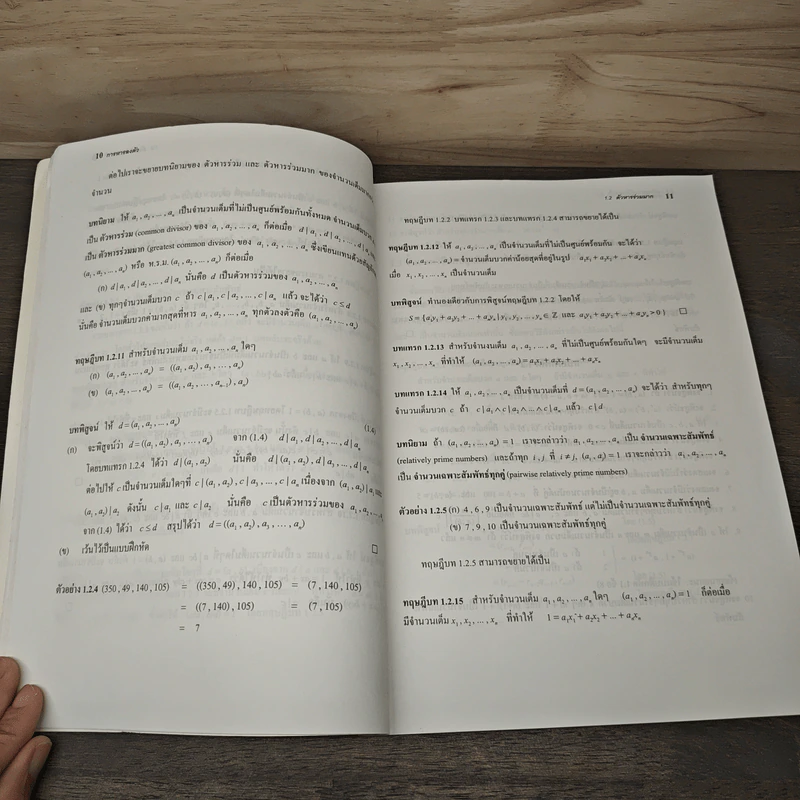 10 การหารลงตัว
ต่อไปเราจะขยายบทนิยามของ ตัวหารร่วม และ ตัวหารร่วมมาก ของจำนวนเต็ม
จำนวน
บทนิยาม ให้ a₁, a₂, ..., aₙ เป็นจำนวนเต็มที่ไม่เป็นศูนย์พร้อมกันทั้งหมด จำนวนเต็มบวก
เป็น ตัวหารร่วม (common divisor) ของ a₁, a₂, ..., aₙ ก็ต่อเมื่อ d | a₁, d | a₂, ..., d | aₙ
เป็น ตัวหารร่วมมาก (greatest common divisor) ของ a₁, a₂, ..., aₙ ซึ่งเขียนแทนด้วย
(a₁, a₂, ..., aₙ) หรือ ห.ร.ม. (a₁, a₂, ..., aₙ) ก็ต่อเมื่อ
(ก) d | a₁, d | a₂, ..., d | aₙ นั่นคือ d เป็นตัวหารร่วมของ a₁, a₂, ..., aₙ
และ (ข) ทุกๆจำนวนเต็มบวก c ถ้า c | a₁, c | a₂, ..., c | aₙ แล้ว จะได้ว่า c ≤ d
นั่นคือ จำนวนเต็มบวกค่ามากสุดที่หาร a₁, a₂, ..., aₙ ทุกตัวลงตัวคือ (a₁, a₂, ..., aₙ)
ทฤษฎีบท 1.2.11 สำหรับจำนวนเต็ม a₁, a₂, ..., aₙ ใดๆ
(ก) (a₁, a₂, ..., aₙ) = ((a₁, a₂), a₃, ..., aₙ)
(ข) (a₁, a₂, ..., aₙ) = ((a₁, a₂, ..., aₙ₋₁), aₙ)
บทพิสูจน์ ให้ d = (a₁, a₂, ..., aₙ) (1.4)
(ก) จะพิสูจน์ว่า d = ((a₁, a₂), a₃, ..., aₙ) จาก (1.4) d | a₁, d | a₂, ..., d | aₙ
โดยบทแทรก 1.2.4 ได้ว่า d | (a₁, a₂) นั่นคือ d | (a₁, a₂), d | a₃, ..., d | aₙ
ต่อไปให้ c เป็นจำนวนเต็มใดๆที่ c | (a₁, a₂), c | a₃, ..., c | aₙ เนื่องจาก (a₁, a₂) | a₁
(a₁, a₂) | a₂ ดังนั้น c | a₁ และ c | a₂ นั่นคือ c เป็นตัวหารร่วมของ a₁, a₂, ..., aₙ
จาก (1.4) ได้ว่า c ≤ d สรุปได้ว่า d = ((a₁, a₂), a₃, ..., aₙ)
(ข) เว้นไว้เป็นแบบฝึกหัด □
ตัวอย่าง 1.2.4 (350, 49, 140, 105) = ((350, 49), 140, 105) = (7, 140, 105)
= ((7, 140), 105) = (7, 105)
= 7
1.2 ตัวหารร่วมมาก 11
ทฤษฎีบท 1.2.2 บทแทรก 1.2.3 และบทแทรก 1.2.4 สามารถขยายได้เป็น
ทฤษฎีบท 1.2.12 ให้ a₁, a₂, ..., aₙ เป็นจำนวนเต็มที่ไม่เป็นศูนย์พร้อมกัน จะได้ว่า
(a₁, a₂, ..., aₙ) = จำนวนเต็มบวกค่าน้อยสุดที่อยู่ในรูป a₁x₁ + a₂x₂ + ... + aₙxₙ
เมื่อ x₁, x₂, ..., xₙ เป็นจำนวนเต็ม
บทพิสูจน์ ทำนองเดียวกับการพิสูจน์ทฤษฎีบท 1.2.2 โดยให้
S = {a₁y₁ + a₂y₂ + ... + aₙyₙ | y₁, y₂, ..., yₙ ∈ ℤ และ a₁y₁ + a₂y₂ + ... + aₙyₙ > 0} □
บทแทรก 1.2.13 สำหรับจำนวนเต็ม a₁, a₂, ..., aₙ ที่ไม่เป็นศูนย์พร้อมกันใดๆ จะมีจำนวนเต็ม
x₁, x₂, ..., xₙ ที่ทำให้ (a₁, a₂, ..., aₙ) = a₁x₁ + a₂x₂ + ... + aₙxₙ
บทแทรก 1.2.14 ให้ a₁, a₂, ..., aₙ เป็นจำนวนเต็มที่ d = (a₁, a₂, ..., aₙ) จะได้ว่า สำหรับทุกๆ
จำนวนเต็มบวก c ถ้า c | a₁ ∧ c | a₂ ∧ ... ∧ c | aₙ แล้ว c | d
บทนิยาม ถ้า (a₁, a₂, ..., aₙ) = 1 เราจะกล่าวว่า a₁, a₂, ..., aₙ เป็น จำนวนเฉพาะสัมพัทธ์
(relatively prime numbers) และถ้าทุก i, j ที่ i ≠ j, (aᵢ, aⱼ) = 1 เราจะกล่าวว่า a₁, a₂, ..., aₙ
เป็น จำนวนเฉพาะสัมพัทธ์ทุกคู่ (pairwise relatively prime numbers)
ตัวอย่าง 1.2.5 (ก) 4, 6, 9 เป็นจำนวนเฉพาะสัมพัทธ์ แต่ไม่เป็นจำนวนเฉพาะสัมพัทธ์ทุกคู่
(ข) 7, 9, 10 เป็นจำนวนเฉพาะสัมพัทธ์ทุกคู่
ทฤษฎีบท 1.2.5 สามารถขยายได้เป็น
ทฤษฎีบท 1.2.15 สำหรับจำนวนเต็ม a₁, a₂, ..., aₙ ใดๆ (a₁, a₂, ..., aₙ) = 1 ก็ต่อเมื่อ
มีจำนวนเต็ม x₁, x₂, ..., xₙ ที่ทำให้ 1 = a₁x₁ + a₂x₂ + ... + aₙxₙ